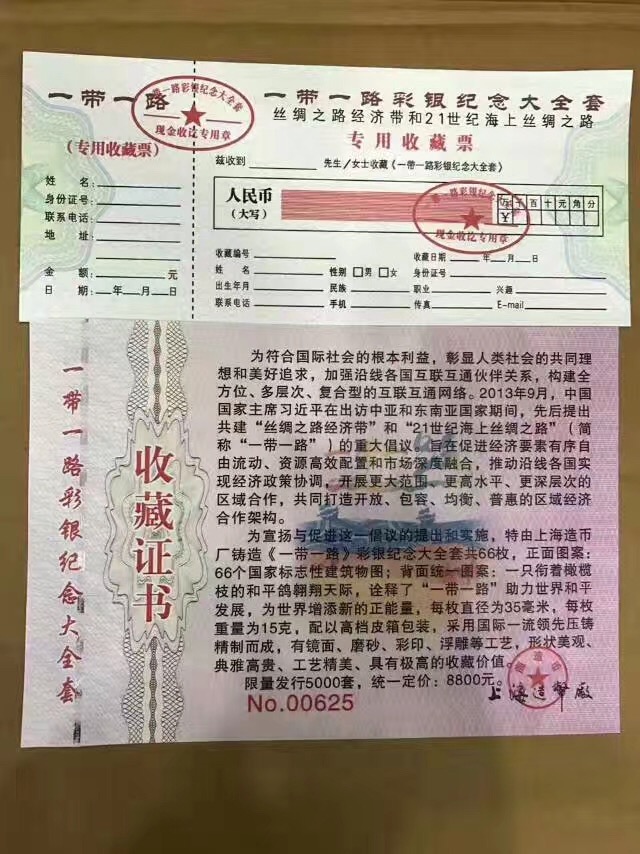 一带一路
一带一路彩银纪念大全套
丝绸之路经济带和21世纪海上丝绸之路
专用收藏票
(专用收藏票)
带一路彩银纪念大全套
现金收讫专用章
兹收到 先生/女士收藏《一带一路彩银纪念大全套》
姓 名:
身份证号:
联系电话:
地 址:
金 额: 元
日 期: 年 月 日
人民币
(大写)
百 十 元 角 分
¥
带一路彩银纪念大全
现金收讫专用章
收藏编号 收藏日期 年 月 日
姓 名 性别 男 女 身份证号
出生年月 民族 职业 兴趣
联系电话 手机 传真 E-mail
一带一路彩银纪念大全套
收藏证书
为符合国际社会的根本利益,彰显人类社会的共同理
想和美好追求,加强沿线各国互联互通伙伴关系,构建全
方位、多层次、复合型的互联互通网络。2013年9月,中国
国家主席习近平在出访中亚和东南亚国家期间,先后提出
共建“丝绸之路经济带”和“21世纪海上丝绸之路”(简
称“一带一路”)的重大倡议。旨在促进经济要素有序自
由流动、资源高效配置和市场深度融合,推动沿线各国实
现经济政策协调,开展更大范围、更高水平、更深层次的
区域合作,共同打造开放、包容、均衡、普惠的区域经济
合作架构。
为宣扬与促进这一倡议的提出和实施,特由上海造币
厂铸造《一带一路》彩银纪念大全套共66枚,正面图案:
66个国家标志性建筑物图;背面统一图案:一只衔着橄榄
枝的和平鸽翱翔天际,诠释了“一带一路”助力世界和平
发展,为世界增添新的正能量,每枚直径为35毫米,每枚
重量为15克,配以高档皮箱包装,采用国际一流领先压铸
精制而成,有镜面、磨砂、彩印、浮雕等工艺,形状美观、
典雅高贵、工艺精美、具有极高的收藏价值。
限量发行5000套,统一定价:8800元。
No.00625
上海造幣廠